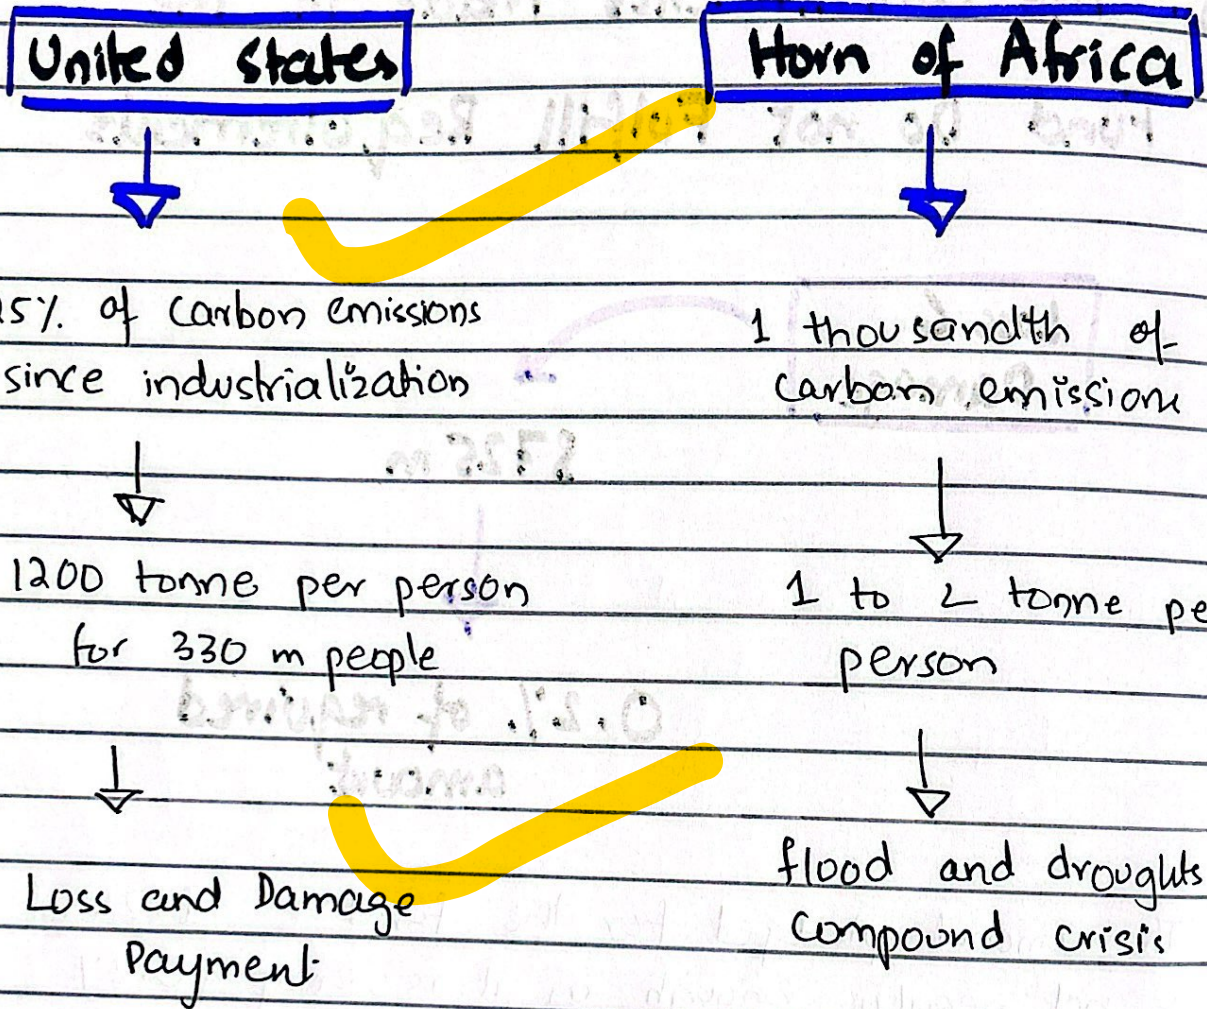 United States
5% of Carbon emissions
since industrialization
1200 tonne per person
for 330 m people
Loss and Damage
Payment
Horn of Africa
1 thousandth of
carbon emissions
1 to 2 tonne pe
person
flood and droughts
Compound crisis